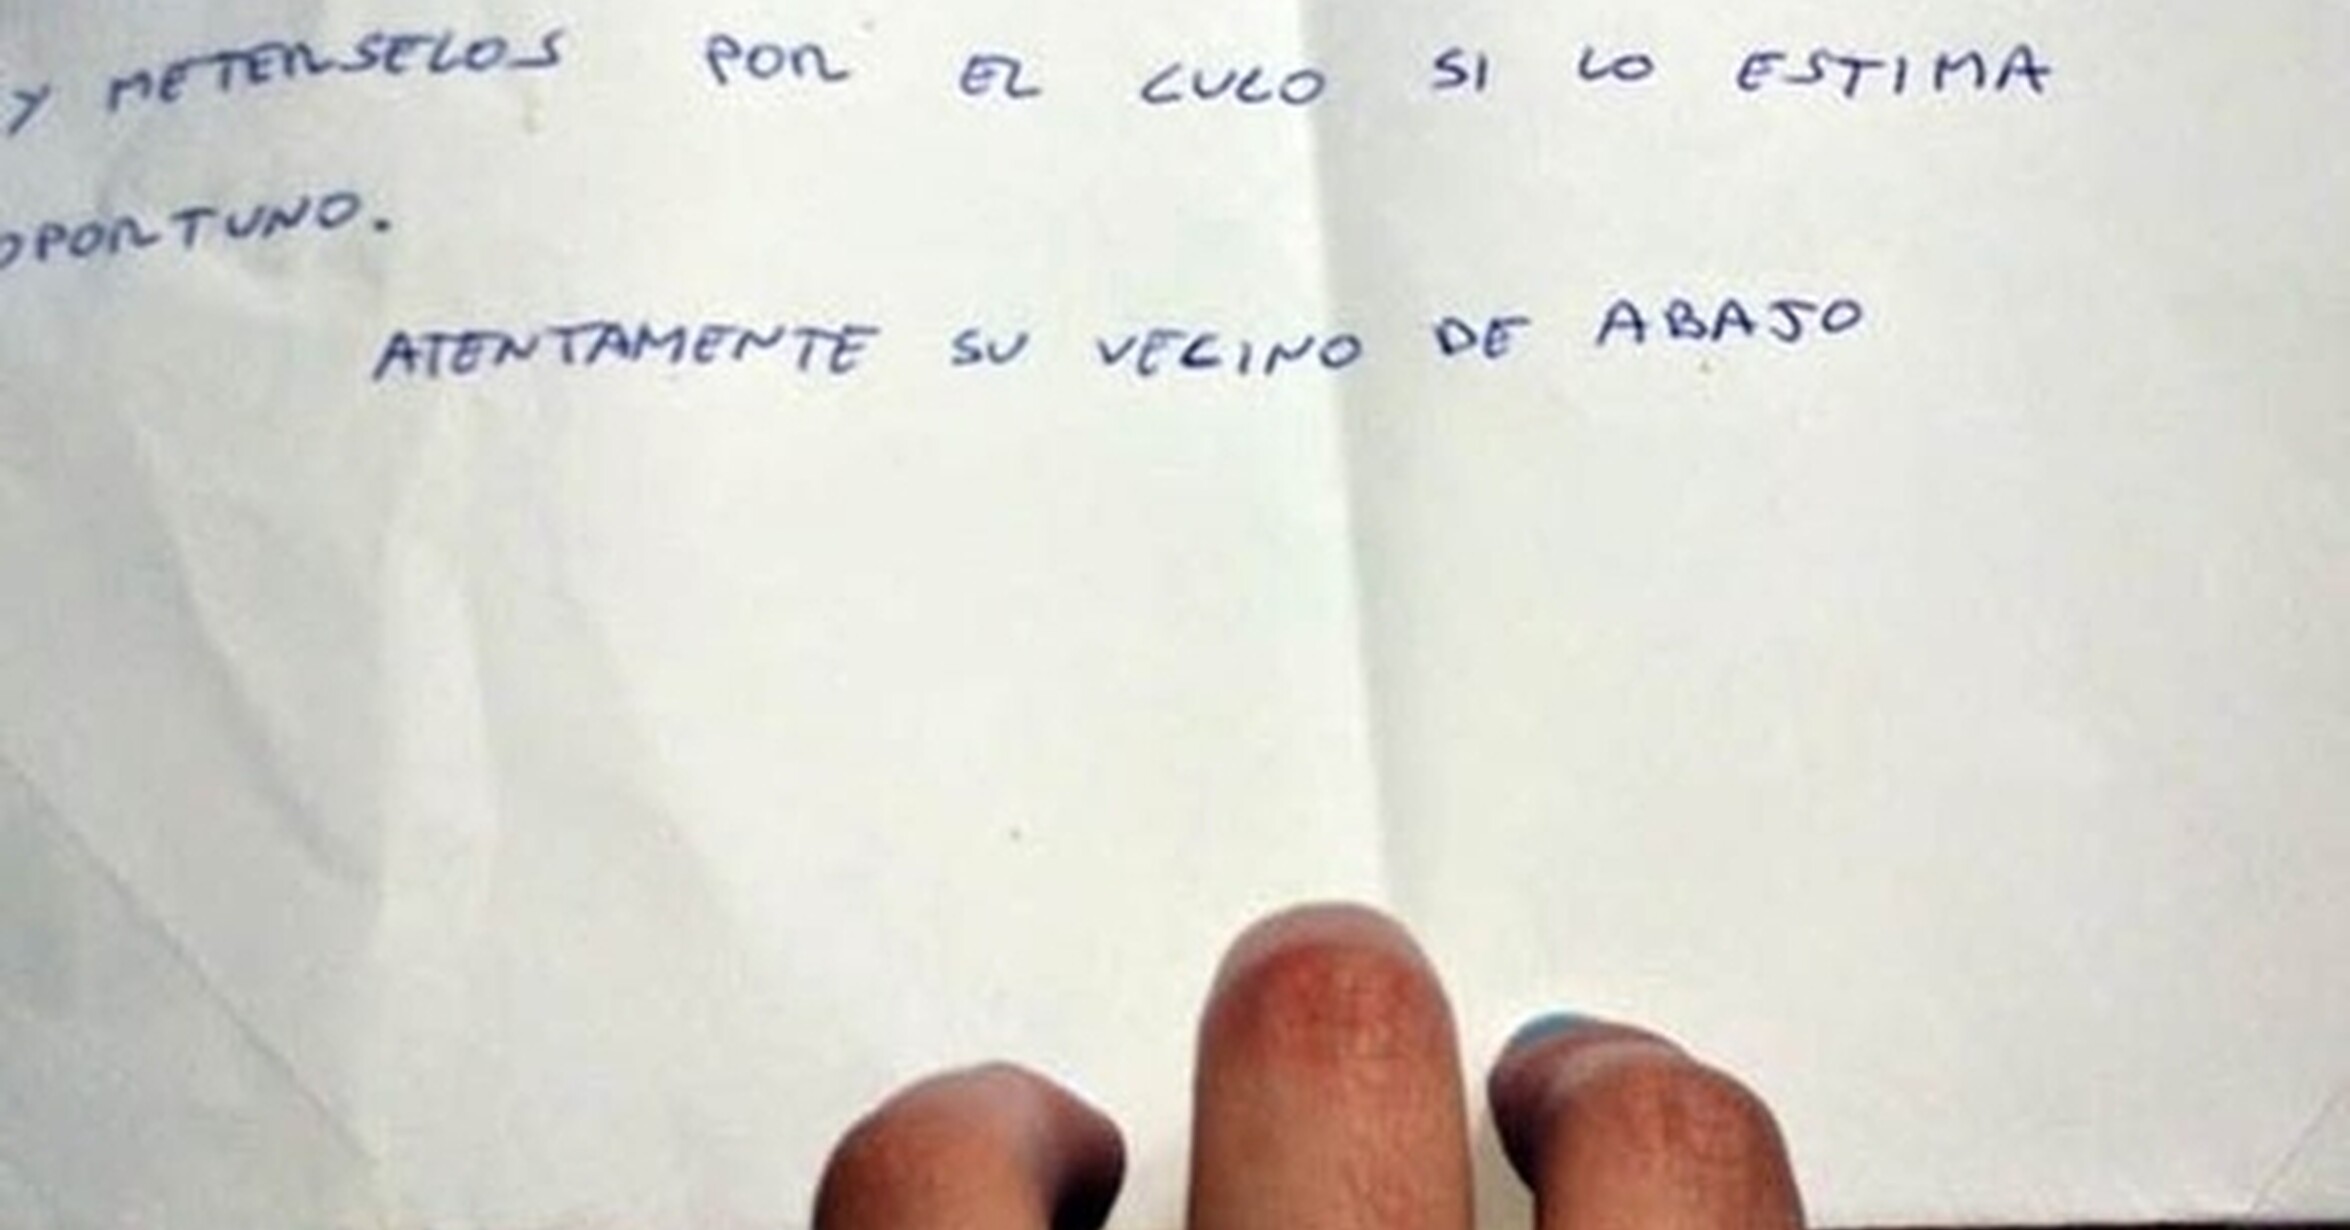 Y METERSELOS POR EL CULO SI LO ESTIMA
OPORTUNO.
ATENTAMENTE SU VECINO DE ABAJO